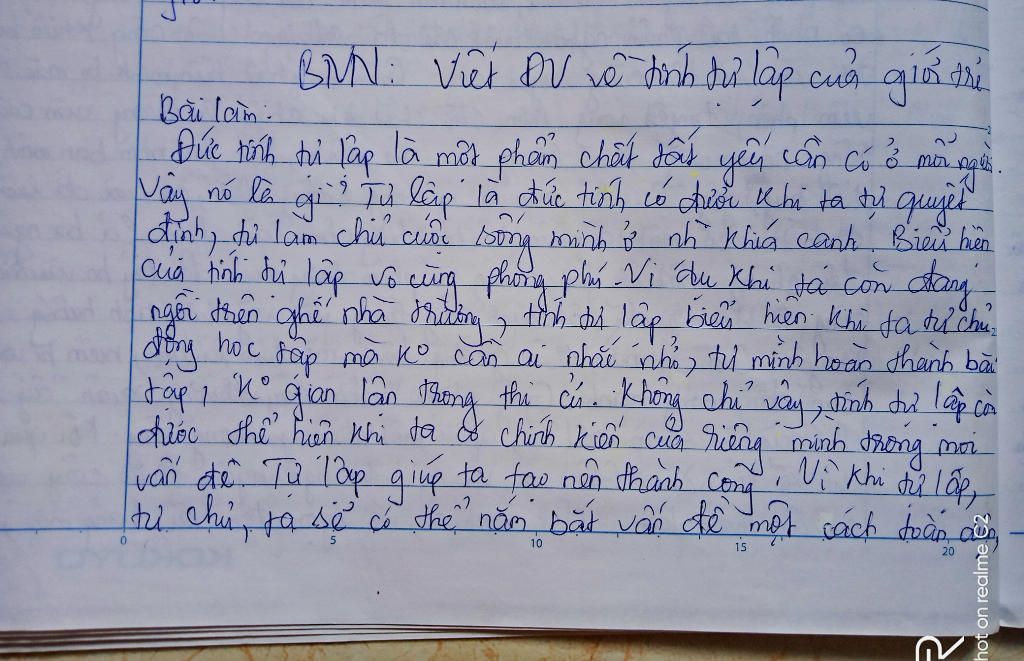 BNN: Viết ĐV về tính tự lập của giới trẻ
Bài làm:
Đức tính tự lập là một phẩm chất tất yếu cần có ở mỗi người.
Vậy nó là gì? Tự lập là đức tính có được khi ta tự quyết
định, tự làm chủ cuộc sống mình ở nh khía cạnh. Biểu hiện
của tính tự lập vô cùng phong phú. Ví dụ khi ta còn đang
ngồi trên ghế nhà trường, tính tự lập biểu hiện khi ta tự chủ
động học tập mà ko cần ai nhắc nhở, tự mình hoàn thành bài
tập, ko gian lận trong thi cử. Không chỉ vậy, tính tự lập còn
được thể hiện khi ta có chính kiến của riêng mình trong mọi
vấn đề. Tự lập giúp ta tạo nên thành công. Vì khi tự lập,
tự chủ, ta sẽ có thể nắm bắt vấn đề một cách toàn
0 5 10 15 20
KOKUYO
Shot on realme C2